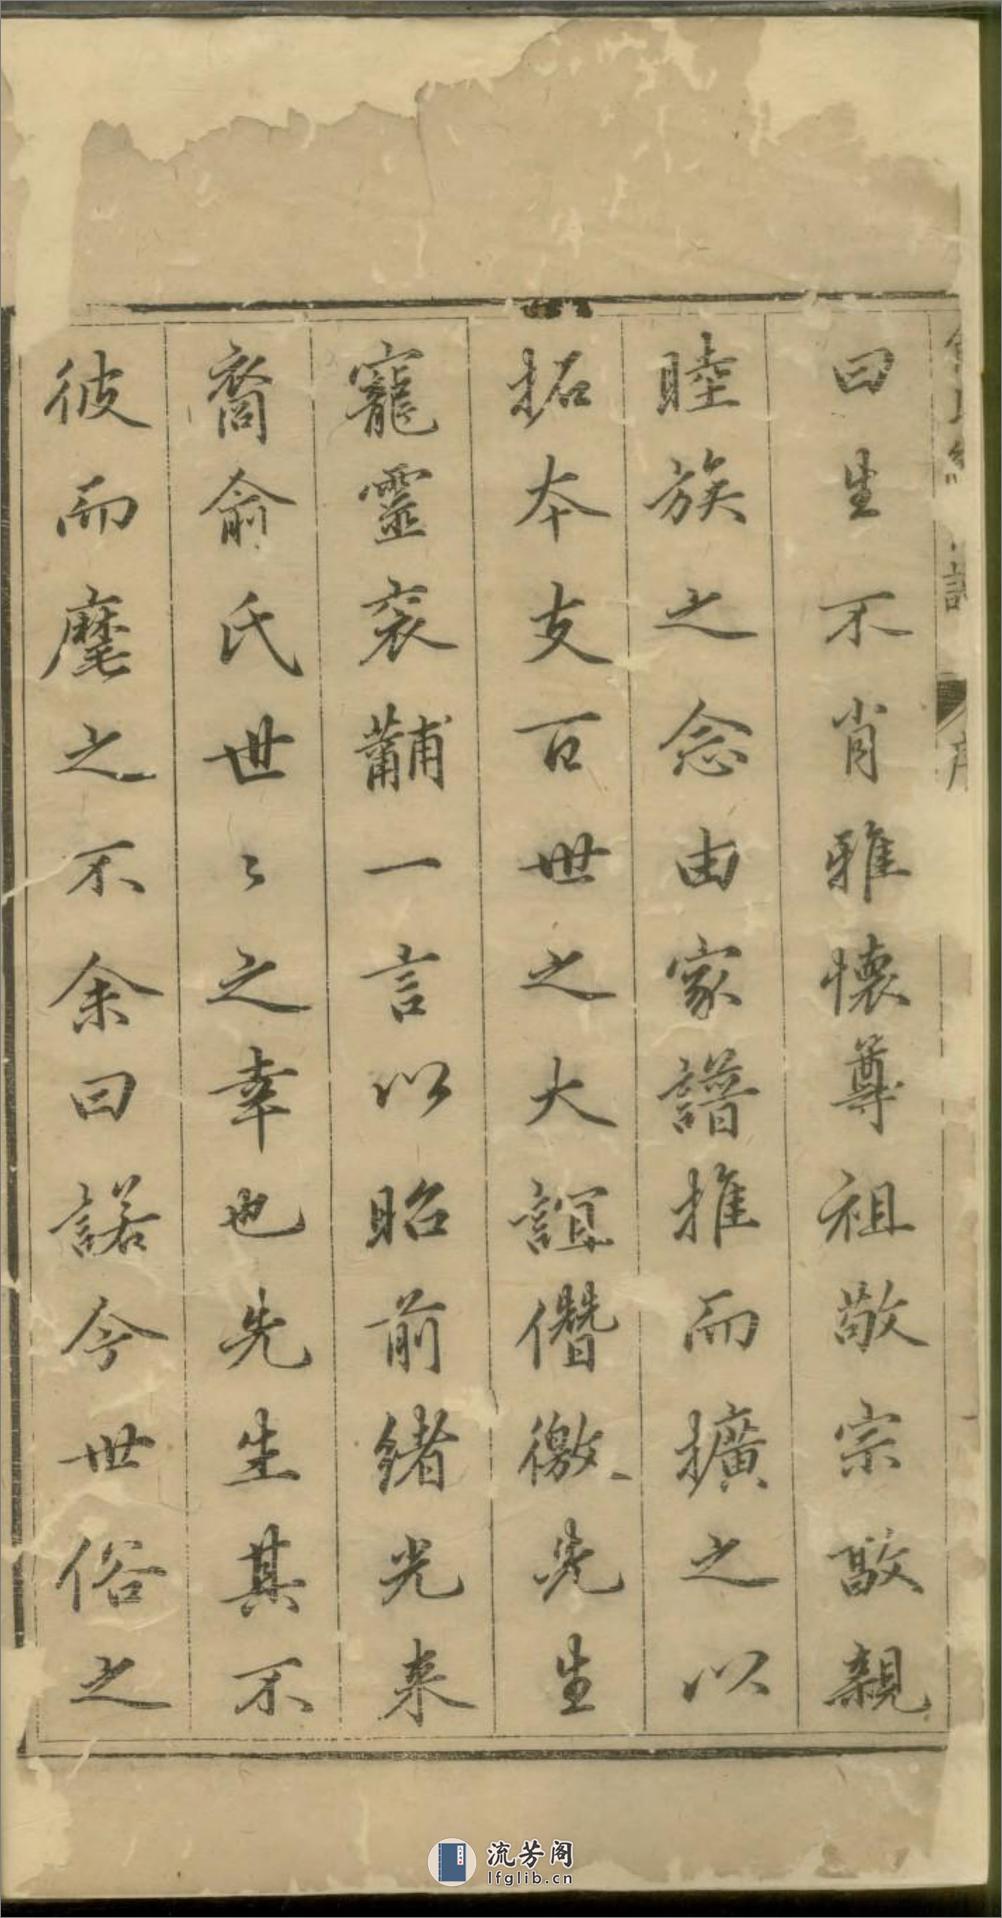 曰生不肖雅懷尊祖敬宗敬親
睦族之念由家譜推而擴之以
拓本支百世之大誼僭徼先生
寵靈衮黼一言以昭前緒光来
裔俞氏世〻之幸也先生其不
彼而麾之不余曰諾今世俗之
序
流芳阁
lfglib.cn